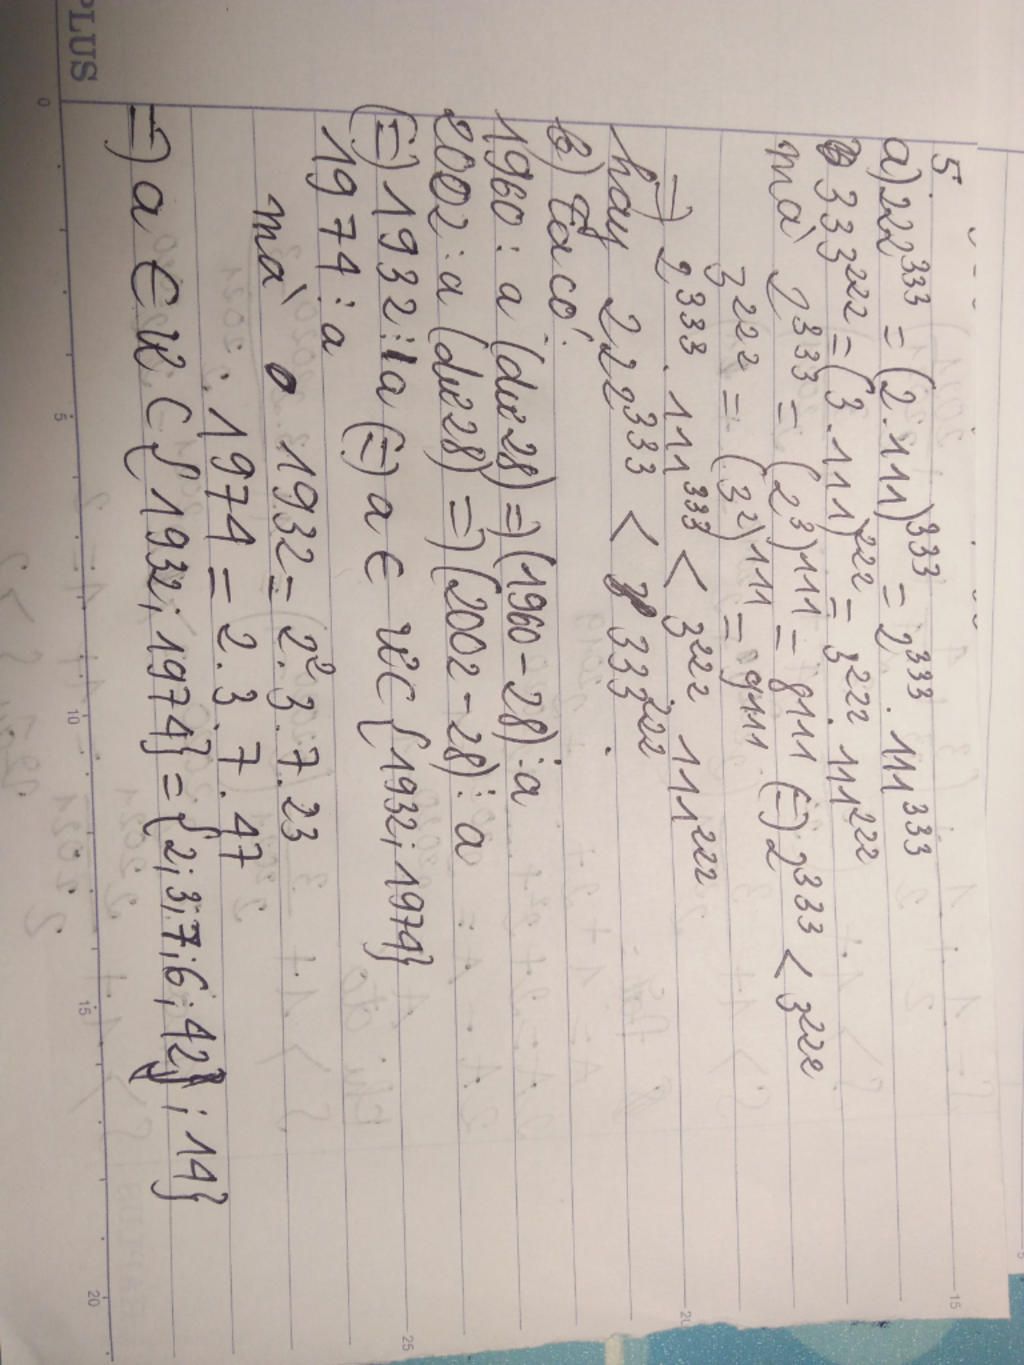 PLUS
5.
a) 222^333 = (2.111)^333 = 2^333 . 111^333
333^222 = (3.111)^222 = 3^222 . 111^222
mà 2^333 = (2^3)^111 = 8^111 (=) 2^333 < 3^222
3^222 = (3^2)^111 = 9^111
=) 2^333 . 111^333 < 3^222 . 111^222
hay 222^333 < 333^222.
b) Ta có:
1960 : a (dư 28) =) (1960 - 28) : a
2002 : a (dư 28) =) (2002 - 28) : a
(=) 1932 : a (=) a ∈ ƯC {1932; 1974}
1974 : a
mà 1932 = 2^2 . 3 . 7 . 23
1974 = 2 . 3 . 7 . 47
=) a ∈ ƯC {1932; 1974} = {2; 3; 7; 6; 42; 14}